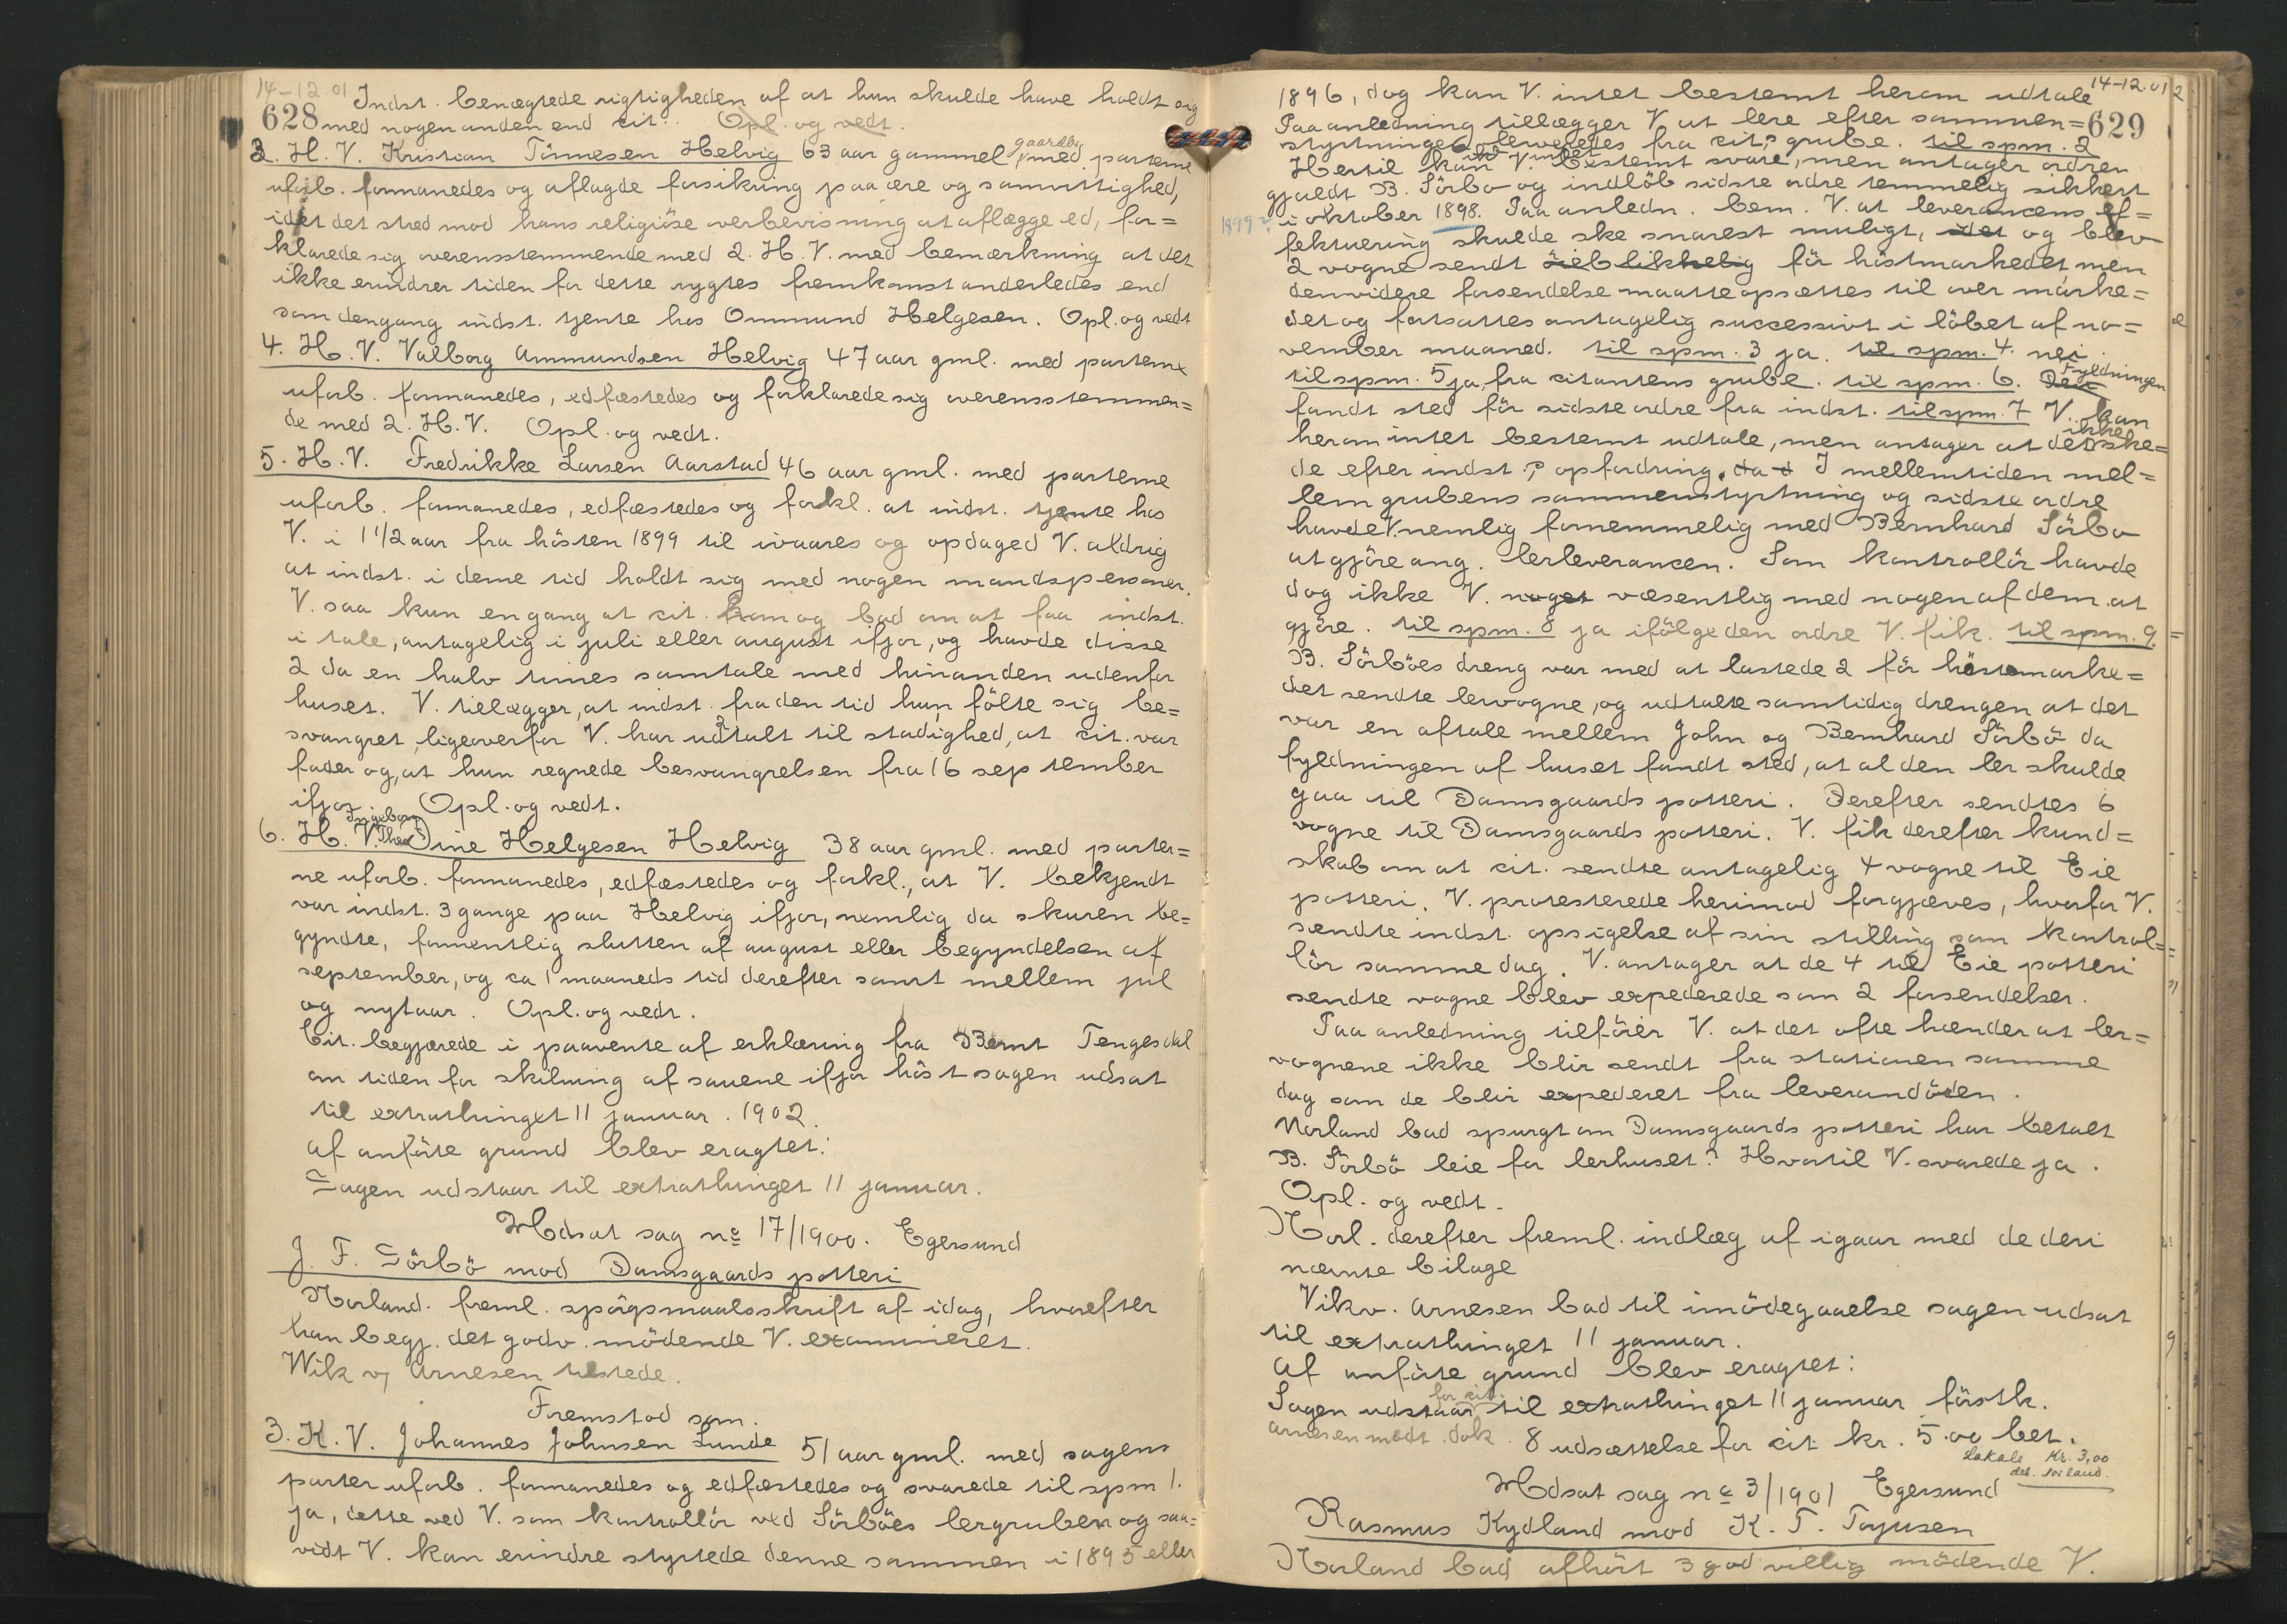 14-12.01
Indst. benægtede rigtigheden af at hun skulde have holdt sig
628 med nogen anden end cit. Opl. og vedt.
3. H. V. Kristian Tönnesen Helvig 63 aar gammel gaardbr. med parterne
uforb. formanedes og aflagde forsikring paa ære og samvittighed,
idet det stred mod hans religiöse overbevisning at aflægge ed, for=
klarede sig overensstemmende med 2. H. V. med bemærkning at det
ikke erindrer tiden for dette rygtes fremkomst anderledes end
som dengang indst. tjente hos Ommund Helgesen. Opl. og vedt
4. H. V. Valborg Ammundsen Helvig 47 aar gml. med parterne
uforb. formanedes, edfæstedes og forklarede sig overensstemmen=
de med 2. H. V. Opl. og vedt.
5. H. V. Fredrikke Larsen Aarstad 46 aar gml. med parterne
uforb. formanedes, edfæstedes og forkl. at indst. tjente hos
V. i 1 1/2 aar fra hösten 1899 til ivaares og opdaged V. aldrig
at indst. i denne tid holdt sig med nogen mandspersoner.
V. saa kun en gang at cit. kom og bad om at faa indst.
i tale, antagelig i juli eller august ifjor, og havde disse
2 da en halv times samtale med hinanden udenfor
huset. V. tillægger, at indst. fra den tid hun fölte sig be=
svangret, ligeoverfor V. har udtalt til stadighed, at cit. var
fader og, at hun regnede besvangrelsen fra 16 september
ifjor Opl. og vedt.
6. H. V. Ingeborg Thea Dine Helgesen Helvig 38 aar gml. med parter=
ne uforb. formanedes, edfæstedes og forkl., at V. bekjendt
var indst. 3 gange paa Helvig ifjor, nemlig da skuren be=
gyndte, formentlig slutten af august eller begyndelsen af
september, og ca 1 maaneds tid derefter samt mellem jul
og nytaar. Opl. og vedt.
Cit. begjærede i paavente af erklæring fra Bernt Tengesdal
om tiden for skilning af sauene ifjor höst sagen udsat
til extrathinget 11 januar. 1902.
af anförte grund blev eragtet:
Sagen udstaar til extrathinget 11 januar.
Udsat sag no 17/1900. Egersund
J. F. Sörbö mod Damsgaards potteri
Norland. freml. spörgsmaalsskrift af idag, hvorefter
han begj. det godv. mödende V. examineret.
Wik v/ Arnesen tilstede.
Fremstod som.
3. K. V. Johannes Johnsen Lunde 51 aar gml. med sagens
parter uforb. formanedes og edfæstedes og svarede til spm 1.
ja, dette ved V. som kontrollör ved Sörböes lergruben og saa=
vidt V. kan erindre styrtede denne sammen i 1895 eller
14-12.01
1896, dog kan V. intet bestemt herom udtale
629
Paa anledning tillægger V. at lere efter sammen=
styrtningen leveredes fra cit.s grube. til spm. 2
Hertil kan V. intet bestemt svare, men antager ordren
gjaldt B. Sörbö og indlöb sidste ordre temmelig sikkert
1899? i oktober 1898. Paa anledn. bem. V. at leverancens ef=
fektuering skulde ske snarest muligt, idet og blev
2 vogne sendt öieblikkelig för höstmarkedet, men
den videre forsendelse maatte opsættes til over marke=
det og fortsattes antagelig successivt i löbet af no=
vember maaned. til spm. 3 ja. til spm. 4. nei.
til spm. 5 ja, fra citantens grube. til spm. 6. Den Fyldningen
fandt sted för sidste ordre fra indst. til spm. 7 V. kan
herom intet bestemt udtale, men antager at det ikke ske=
de efter indst.s opfordring, da d I mellemtiden mel=
lem grubens sammenstyrtning og sidste ordre
havde V. nemlig fornemmelig med Bernhard Sörbö
at gjöre ang. lerleverancen. Som kontrollör havde
dog ikke V. noget væsentlig med nogen af dem at
gjöre. til spm. 8 ja ifölge den ordre V. fik. til spm. 9.
B. Sörböes dreng var med at lastede 2 för höstemarke=
det sendte lervogne, og udtalte samtidig drengen at det
var en aftale mellem John og Bernhard Sörbö da
fyldningen af huset fandt sted, at al den ler skulde
gaa til Damsgaards potteri. Derefter sendtes 6
vogne til Damsgaards potteri. V. fik derefter kund=
skab om at cit. sendte antagelig 4 vogne til Eie
potteri. V. protesterede herimod forgjæves, hvorfor V.
sendte indst. opsigelse af sin stilling som kontrol=
lör samme dag. V. antager at de 4 til Eie potteri
sendte vogne blev expederede som 2 forsendelser.
Paa anledning tilföier V. at det ofte hænder at ler=
vognene ikke blir sendt fra stationen samme
dag som de blir expederet fra leverandören.
Norland bad spurgt om Damsgaards potteri har betalt
B. Sörbö leie for lerhuset? Hvortil V. svarede ja.
Opl. og vedt.
Norl. derefter freml. indlæg af igaar med de deri
nævnte bilage
Vik v. Arnesen bad til imödegaaelse sagen udsat
til extrathinget 11 januar.
Af anförte grund blev eragtet:
Sagen udstaar for cit. til extrathinget 11 januar förstk.
Arnesen modt. dok. 8 udsættelse for cit kr. 5.00 bet.
Lokale Kr. 3,00
det. Norland.
Udsat sag no 3/1901 Egersund
Rasmus Kydland mod K. T. Tojusen
Norland bad afhört 3 godvillig mödende V.